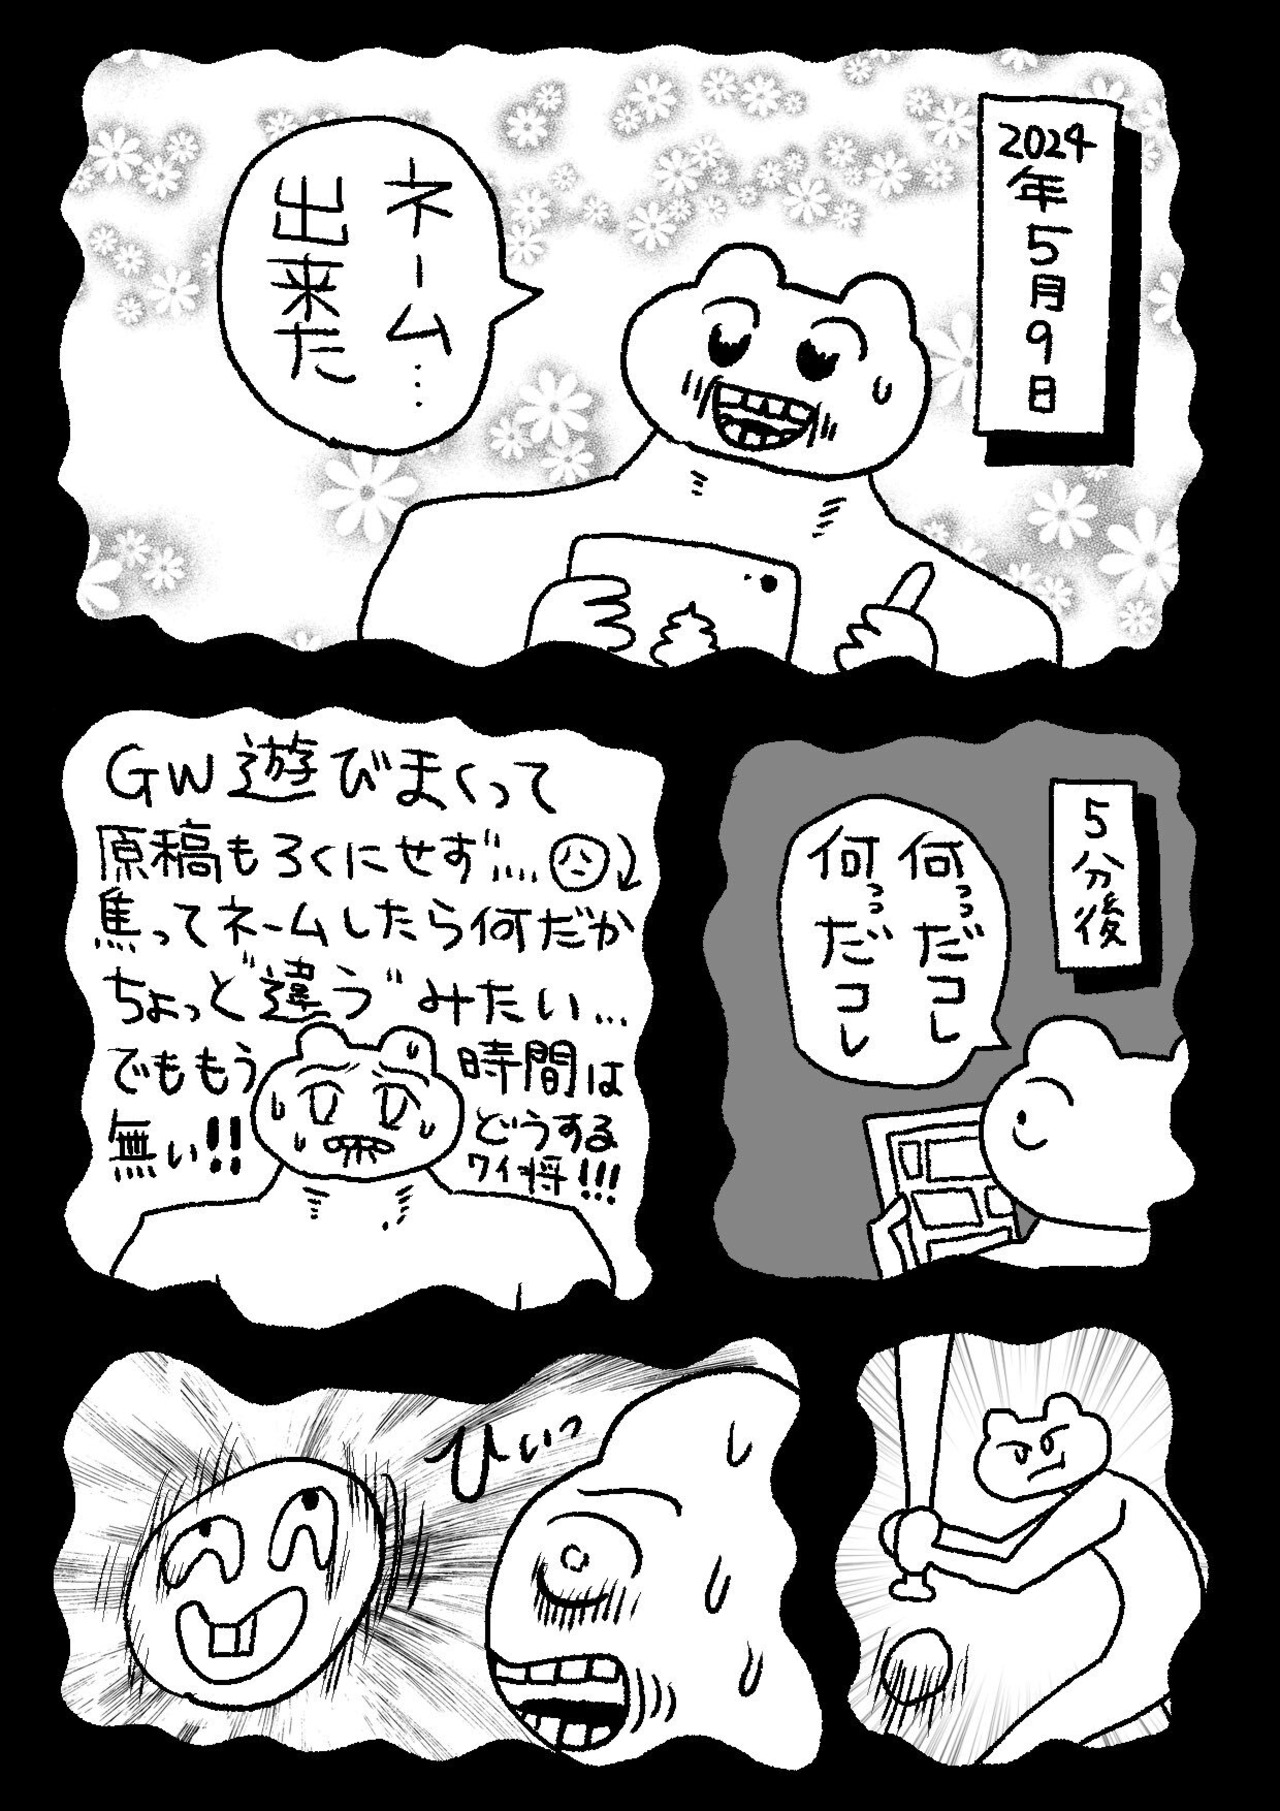 2024年5月9日
ネーム…
出来た
5分後
何っっだコレ
何っっだコレ
GW遊びまくって
原稿もろくにせず…
焦ってネームしたら何だか
ちょっど違うﾞみたい…
でももう時間は
無い!!
どうする
ワイ将!!!
ひぃっ